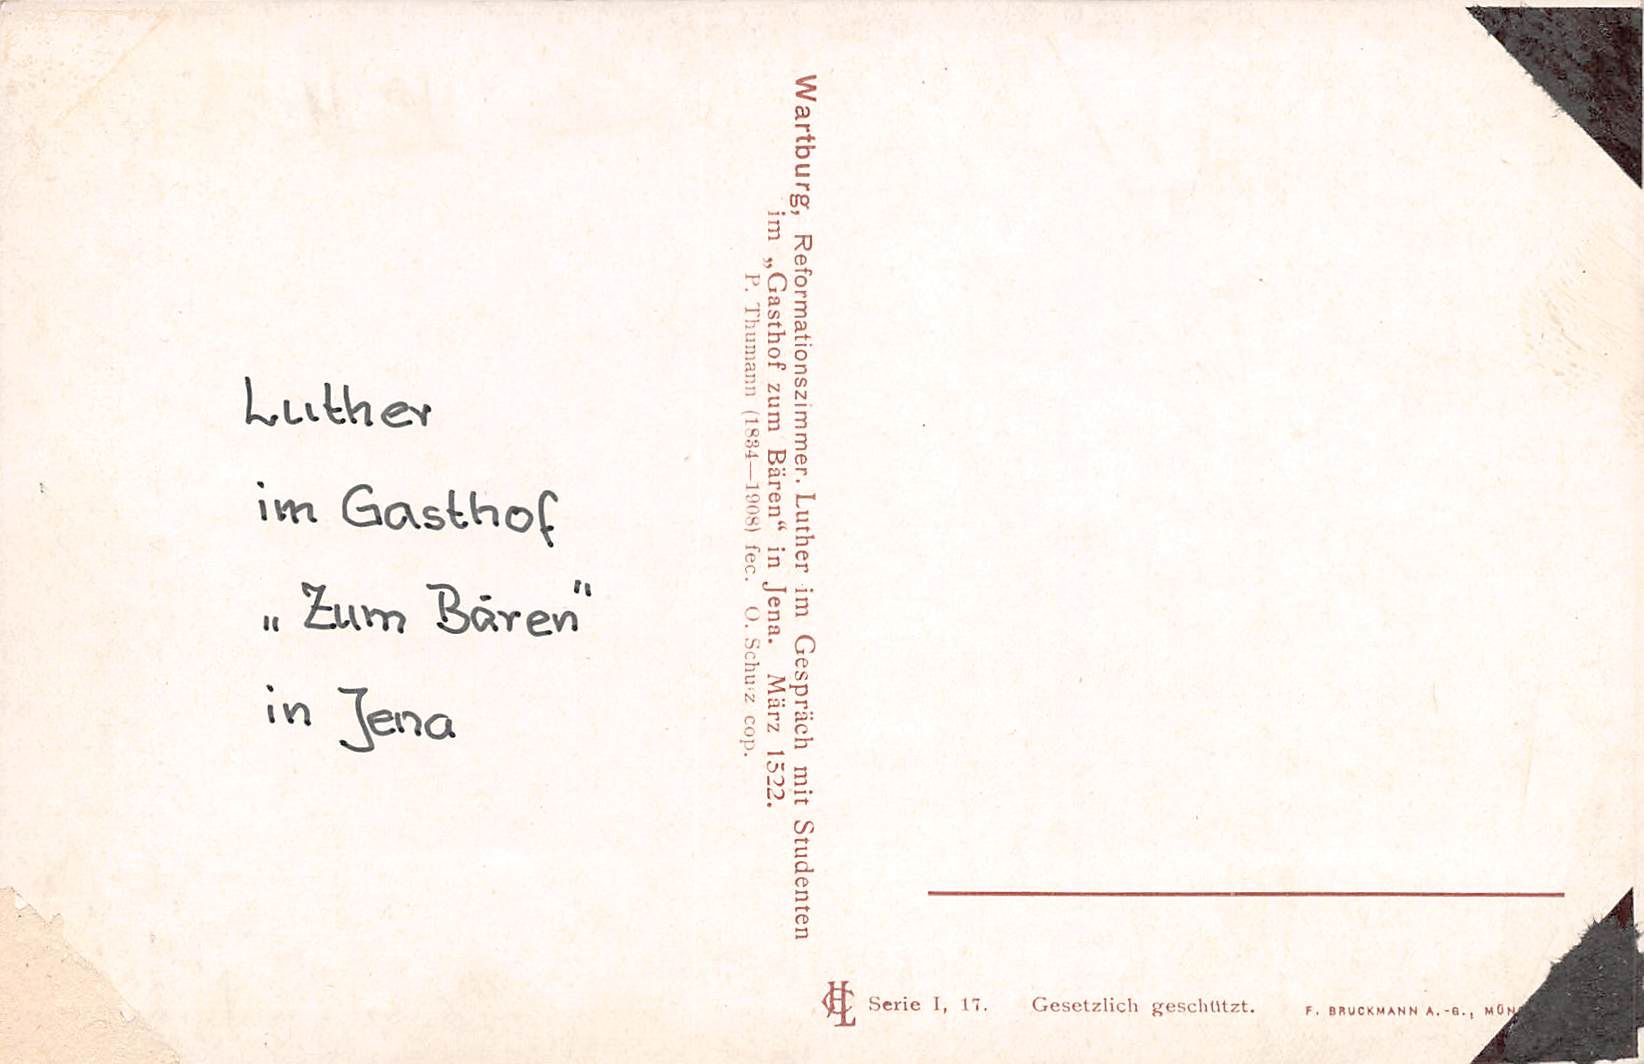 Luther
im Gasthof
„Zum Bären"
in Jena
Wartburg, Reformationszimmer. Luther im Gespräch mit Studenten
im „Gasthof zum Bären“ in Jena. März 1522.
P. Thumann (1834—1908) fec. O. Schulz cop.
Serie I, 17. Gesetzlich geschützt. F. BRUCKMANN A.-G.,